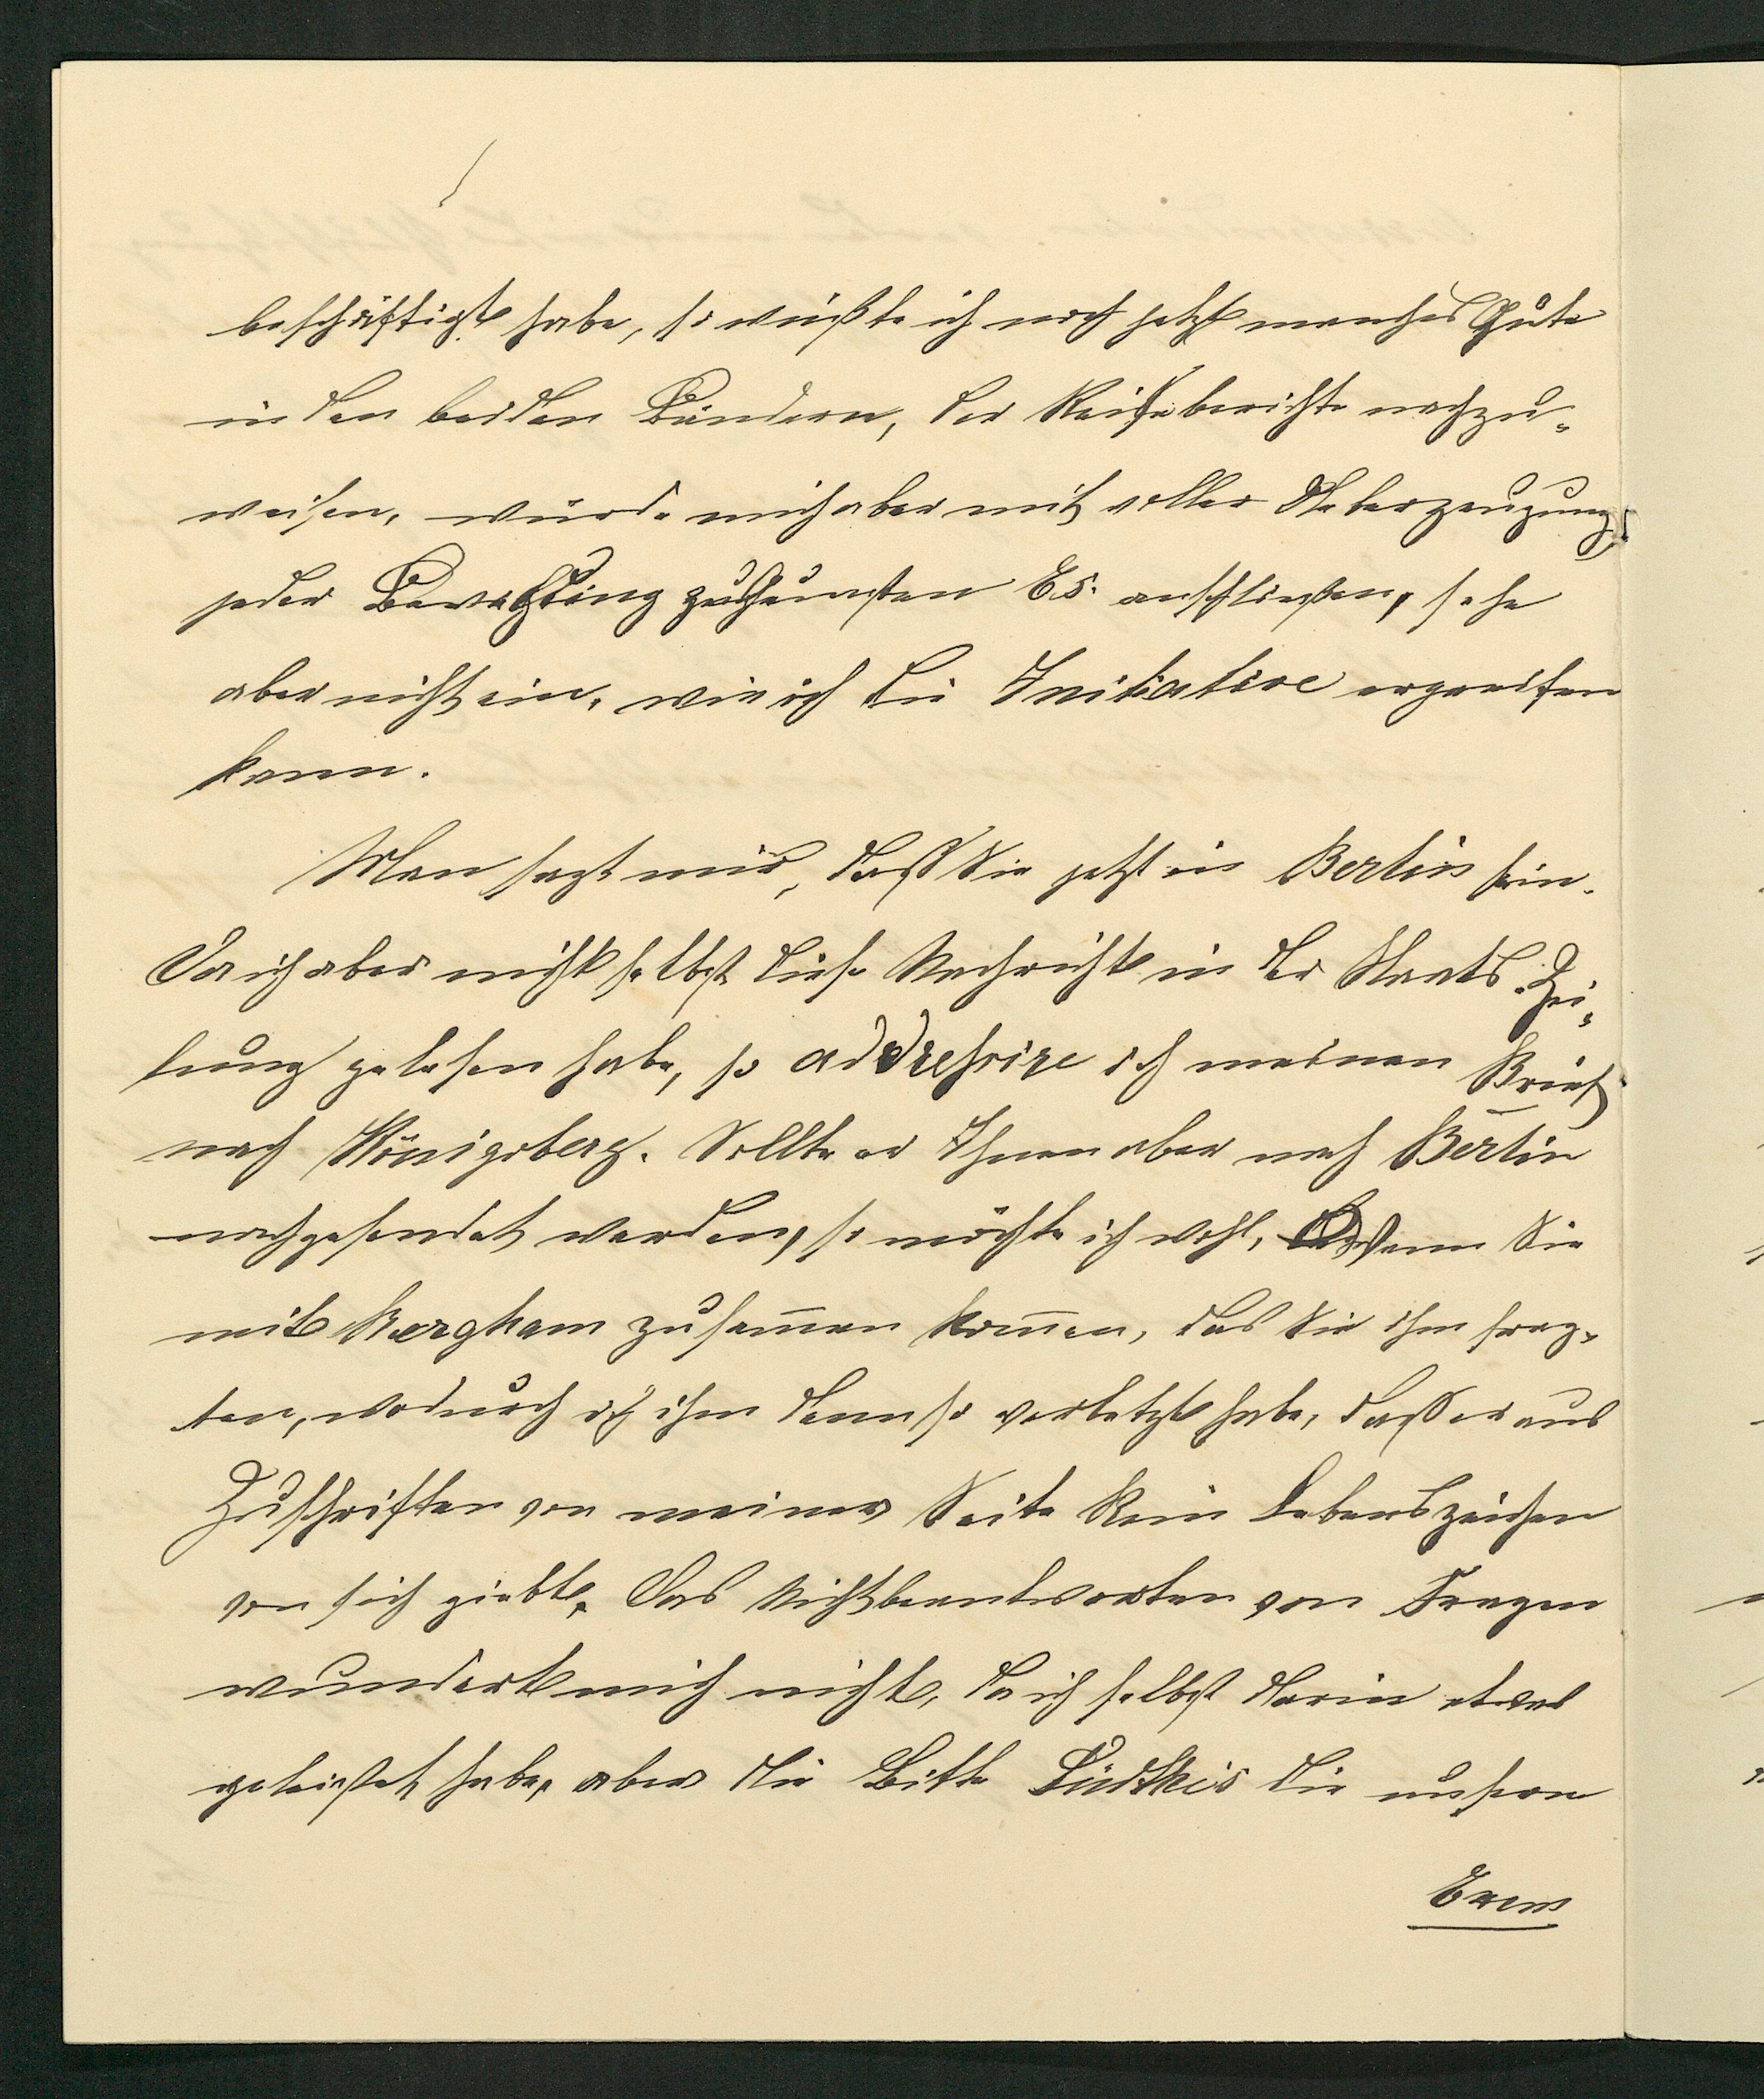 beschäftigt habe, so wüßte ich noch jetzt manches Gute
in den beiden Bändern, der Reiseberichte nachzu-
weisen, würde mich aber mit voller Ueberzeugung
jeder Bewegung zu Gunsten Es. anschließen, sehe
aber nicht ein, wie ich die Initiative ergreifen
kann.
Man sagt mir, daß Sie jetzt in Berlin sein.
Da ich aber nicht selbst diese Nachricht in der Staats-Zei-
tung gelesen habe, so addressire ich meinen Brief
nach Königsberg. Sollte er Ihnen aber nach Berlin
nachgesendet werden, so möchte ich wohl, wenn Sie
mit zusam̄en kom̄en, das Sie ihm frag-
ten, wodurch ich ihm denn so verletzt habe, daß er aus
Zuschriften von meiner Seite kein Lebenszeichen
von sich giebt. Das Nichtbeantworten von Fragen
wundert mich nicht, da ich selbst darin etwas
geleistet habe, aber die Bitte die unsern